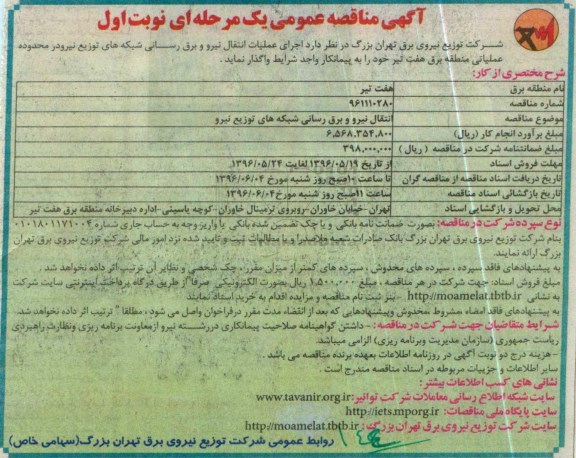 آگهی مناقصه عمومی یک مرحله ای نوبت اول
شرکت توزیع نیروی برق تهران بزرگ در نظر دارد اجرای عملیات انتقال نیرو و برق رسانی شبکه های توزیع نیرودر محدوده
عملیاتی منطقه برق هفت تیر خود را به پیمانکار واجد شرایط واگذار نماید .
شرح مختصری از کار:
نام منطقه برق هفت تیر
شماره مناقصه ۹۶۱۱۱۰۲۸۰
موضوع مناقصه انتقال نیرو و برق رسانی شبکه های توزیع نیرو
مبلغ برآورد انجام کار (ریال) ۶,۵۶۸,۳۵۴,۸۰۰
مبلغ ضمانتنامه شرکت در مناقصه ( ریال ) ۳۹۸,۰۰۰,۰۰۰
مهلت فروش اسناد از تاریخ ۱۳۹۶/۰۵/۱۹ لغایت ۱۳۹۶/۰۵/۲۴
تاریخ دریافت اسناد مناقصه از مناقصه گران تا ساعت ۱۰صبح روز شنبه مورخ ۱۳۹۶/۰۶/۰۴
تاریخ بازگشائی اسناد مناقصه ساعت ۱۱صبح روز شنبه مورخ۱۳۹۶/۰۶/۰۴
محل تحویل و بازگشایی اسناد تهران -خیابان خاوران-روبروی ترمینال خاوران-کوچه یاسینی-اداره دبیرخانه منطقه برق هفت تیر
نوع سپرده شرکت در مناقصه: بصورت ضمانت نامه بانکی و یا چک تضمین شده بانکی یا واریز وجه به حساب جاری شماره ۰۱۰۱۸۰۱۱۷۱۰۰۴
بنام شرکت توزیع نیروی برق تهران بزرگ بانک صادرات شعبه ملاصدرا و یا مطالبات ثبت و تایید شده نزد امور مالی شرکت توزیع نیروی برق تهران
بزرگ ارائه نمایند.
به پیشنهادهای فاقد سپرده ، سپرده های مخدوش ، سپرده های کمتر از میزان مقرر، چک شخصی و نظایر آن ترتیب اثر داده نخواهد شد .
مبلغ فروش اسناد: جهت شرکت در هر مناقصه ، مبلغ ۱,۵۰۰,۰۰۰ ریال بصورت الکترونیکی صرفاً از طریق درگاه پرداخت اینترنتی سایت شرکت
به نشانی http://moamelat.tbtb.ir بنز ثبت نام مناقصه و مزایده اقدام به خرید اسناد نمایند.
به پیشنهادهای فاقد امضاء ،مشروط ،مخدوش وپیشنهادهایی که بعد از انقضاء مدت مقرر درفراخوان واصل می شود، مطلقاً ً ترتیب اثر داده نخواهد شد.
شرایط متقاضیان جهت شرکت در مناقصه: - داشتن گواهینامه صلاحیت پیمانکاری دررشته نیرو ازمعاونت برنامه ریزی ونظارت راهبردی
ریاست جمهوری (سازمان مدیریت وبرنامه ریزی) الزامی میباشد.
- هزینه درج دو نوبت آگهی در روزنامه اطلاعات بعهده برنده مناقصه می باشد .
سایر اطلاعات و جزییات مربوطه در اسناد مناقصه مندرج است .
نشانی های کسب اطلاعات بیشتر:
سایت شبکه اطلاع رسانی معاملات شرکت توانیر: www.tavanir.org.ir
سایت پایگاه ملی مناقصات: http://iets.mporg.ir
سایت شرکت توزیع نیروی برق تهران بزرگ : http://moamelat.tbtb.ir
روابط عمومی شرکت توزیع نیروی برق تهران بزرگ(سهامی خاص)